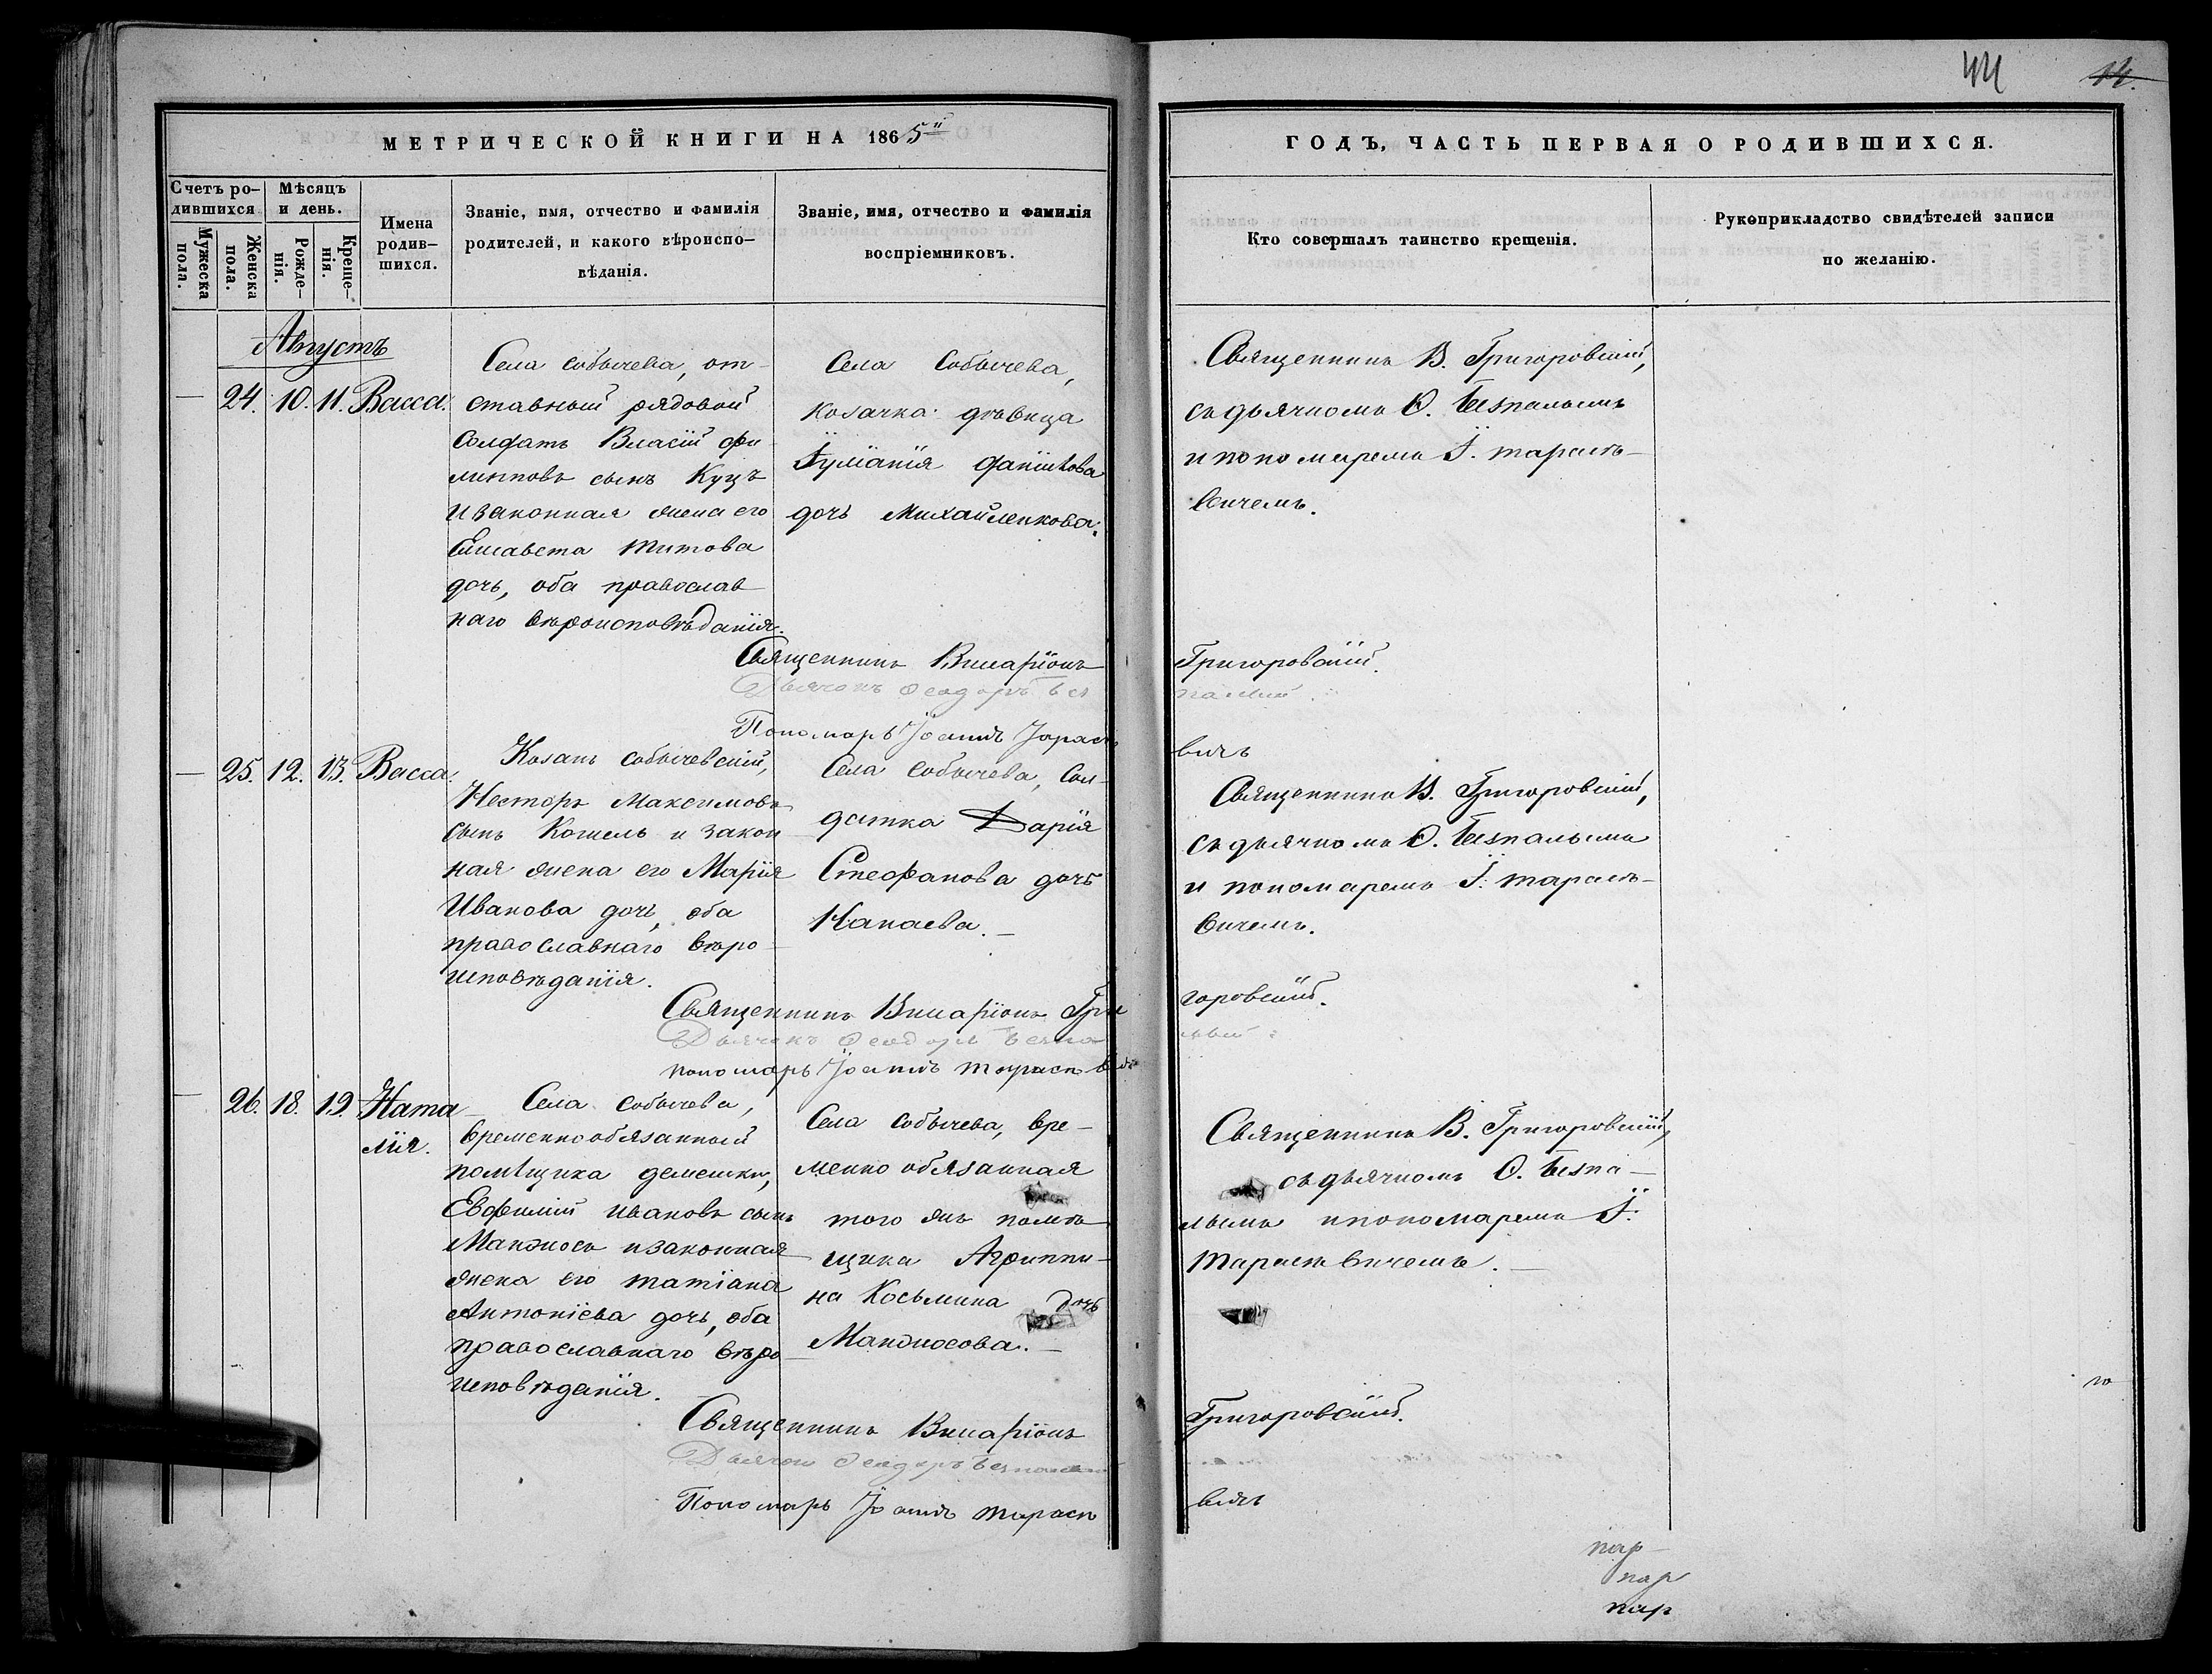 44 14.
МЕТРИЧЕСКОЙ КНИГИ НА 1865й
ГОДЪ, ЧАСТЬ ПЕРВАЯ О РОДИВШИХСЯ.
Счетъ ро-
дившихся
Мужеска
пола.
Женска
пола.
Мѣсяцъ
и день.
Рожде-
нія.
Креще-
нія.
Имена
родив-
шихся.
Званіе, имя, отчество и фамилія
родителей, и какого вѣроиспо-
вѣданія.
Званіе, имя, отчество и фамилія
воспріемниковъ.
Кто совершалъ таинство крещенія.
Рукоприкладство свидѣтелей записи
по желанію.
Августъ
— 24. 10. 11. Васса.
Села Собычева, от-
ставный рядовой
Солдатъ Власій Фи-
липповъ сынъ Куцъ
и законная жена его
Елисавета Титова
дочь, оба православ-
наго вѣроисповѣданія.
Села Собычева,
козачка дѣвица
Іуліанія Данiилова
дочь Михайленкова.
Священникъ В. Григоровскій,
съ дьячкомъ Ѳ. Безпалымъ
и пономаремъ І. Тарасѣ-
вичемъ.
Священникъ Виларіонъ Григоровскій.
Дьячокъ Ѳеодоръ Безпалый.
Пономарь Іоаннъ Тарасѣвичъ
— 25. 12. 13. Васса.
Козакъ Собычевскій,
Несторъ Максимовъ
сынъ Кошель и закон-
ная жена его Марія
Иванова дочь, оба
православнаго вѣро-
исповѣданія.
Села Собычева, Сол-
датка Дарія
Стефанова дочь
Капаева. —
Священникъ В. Григоровскій,
съ дьячкомъ Ѳ. Безпалымъ
и пономаремъ І. Тарасѣ-
вичемъ.
Священникъ Виларіонъ Григоровскій.
Дьячокъ Ѳеодоръ Безпалый
пономарь Іоаннъ Тарасѣвичъ
— 26. 18. 19. Ната-
лія.
Села Собычева,
временнообязанный
помѣщика Демешки,
Евфимій Ивановъ сынъ
Манжосъ и законная
жена его Татіана
Антоніева дочь, оба
православнаго вѣро-
исповѣданія.
Села Собычева, вре-
менно обязанная
того жъ помѣ-
щика Агриппи-
на Косьмина дочь
Манжосова. —
Священникъ В. Григоровскій,
съ дьячкомъ Ѳ. Безпа-
лымъ и пономаремъ І.
Тарасѣвичемъ. —
Священникъ Виларіонъ Григоровскій.
Дьячокъ Ѳеодоръ Безпалый
Пономарь Іоаннъ Тарасѣвичъ
пар
пар
пар